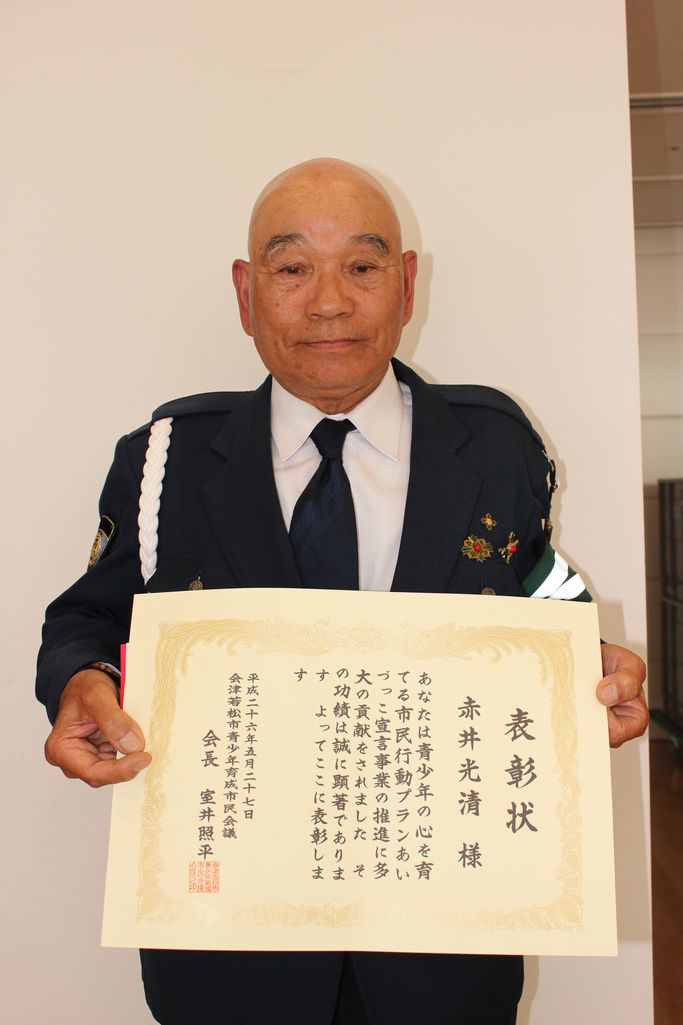 表彰状
赤井光清 様
あなたは青少年の心を育
てる市民行動プランあい
づっこ宣言事業の推進に多
大の貢献をされました そ
の功績は誠に顕著でありま
す よってここに表彰しま
す
平成二十六年五月二十七日
会津若松市青少年育成市民会議
会長 室井照平